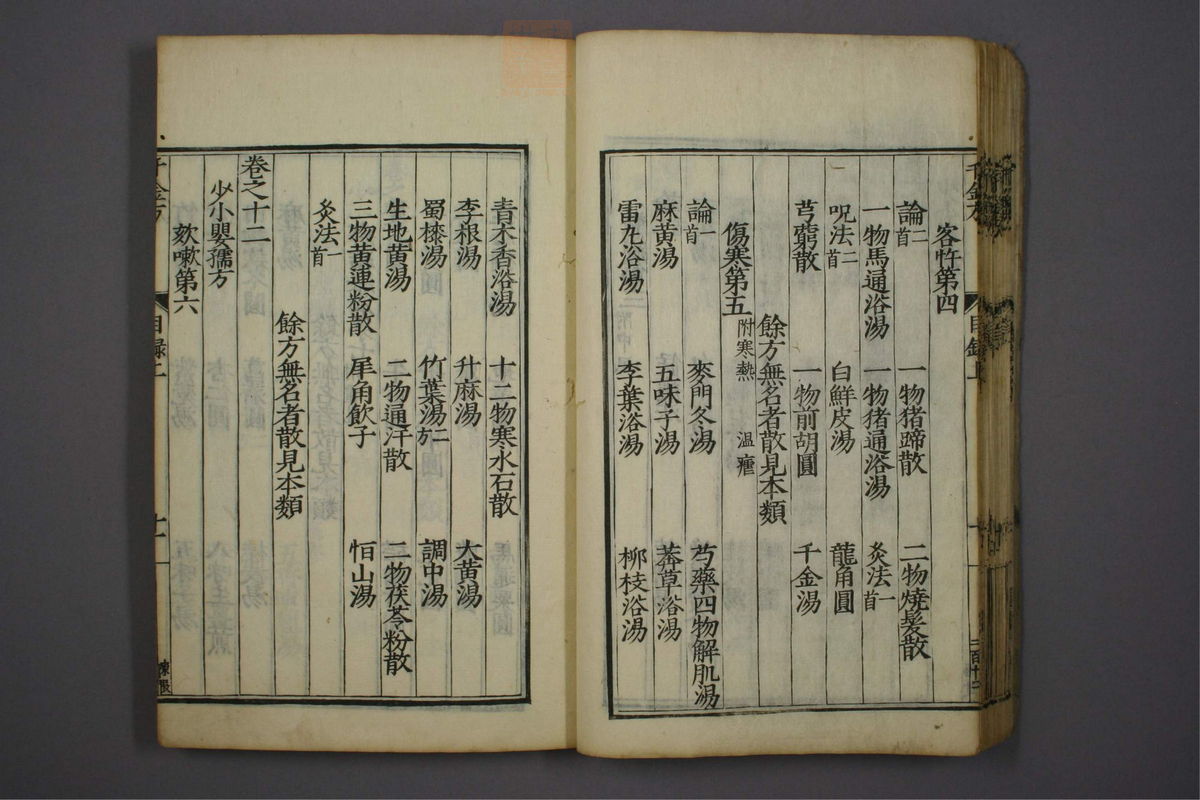 客忤第四
論二首 一物猪蹄散 二物燒髮散
一物馬通浴湯 一物猪通浴湯 灸法一首
呪法二首 白鮮皮湯 龍角圓
芎藭散 一物前胡圓 千金湯
餘方無名者散見本類
傷寒第五 附寒熱 溫瘧
論一首 麥門冬湯 芍藥四物解肌湯
麻黃湯 五味子湯 莽草浴湯
雷丸浴湯 李葉浴湯 柳枝浴湯
青木香浴湯 十二物寒水石散
李根湯 升麻湯 大黃湯
蜀㯶湯 竹葉湯二方 調中湯
生地黃湯 二物通汗散 二物茯苓粉散
三物黃連粉散 犀角飲子 恒山湯
灸法一首
餘方無名者散見本類
卷之十二
少小嬰孺方
欬嗽第六
千金方 目録二